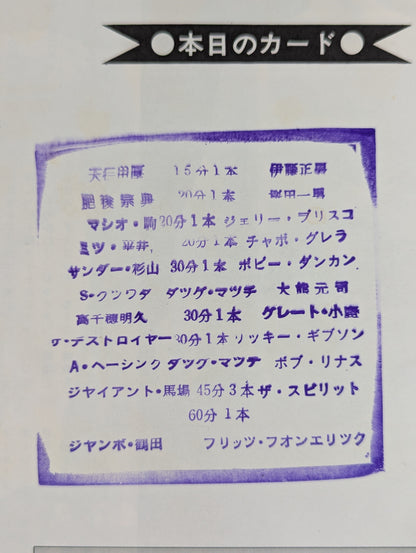 ●本日のカード●
15分1本 伊藤正男
肥後宗典 20分1本 一男
マシオ・駒30分1本ジェリー・ブリスコ
ミツ・平井 20分1本チャボ・グレラ
サンダー・杉山 30分1本 ボビー・ダンカン
S・クツワダ タツグ・マツチ 大熊元司
高千穂明久 30分1本 グレート・小鹿
ザ・デストロイヤー30分1本リッキー・ギブソン
A・ヘーシンク タツグ・マツチ ボブ・リナス
ジヤイアント・馬場 45分3本ザ・スピリット
60分1本
ジヤンボ・鶴田 フリッツ・フオンエリツク